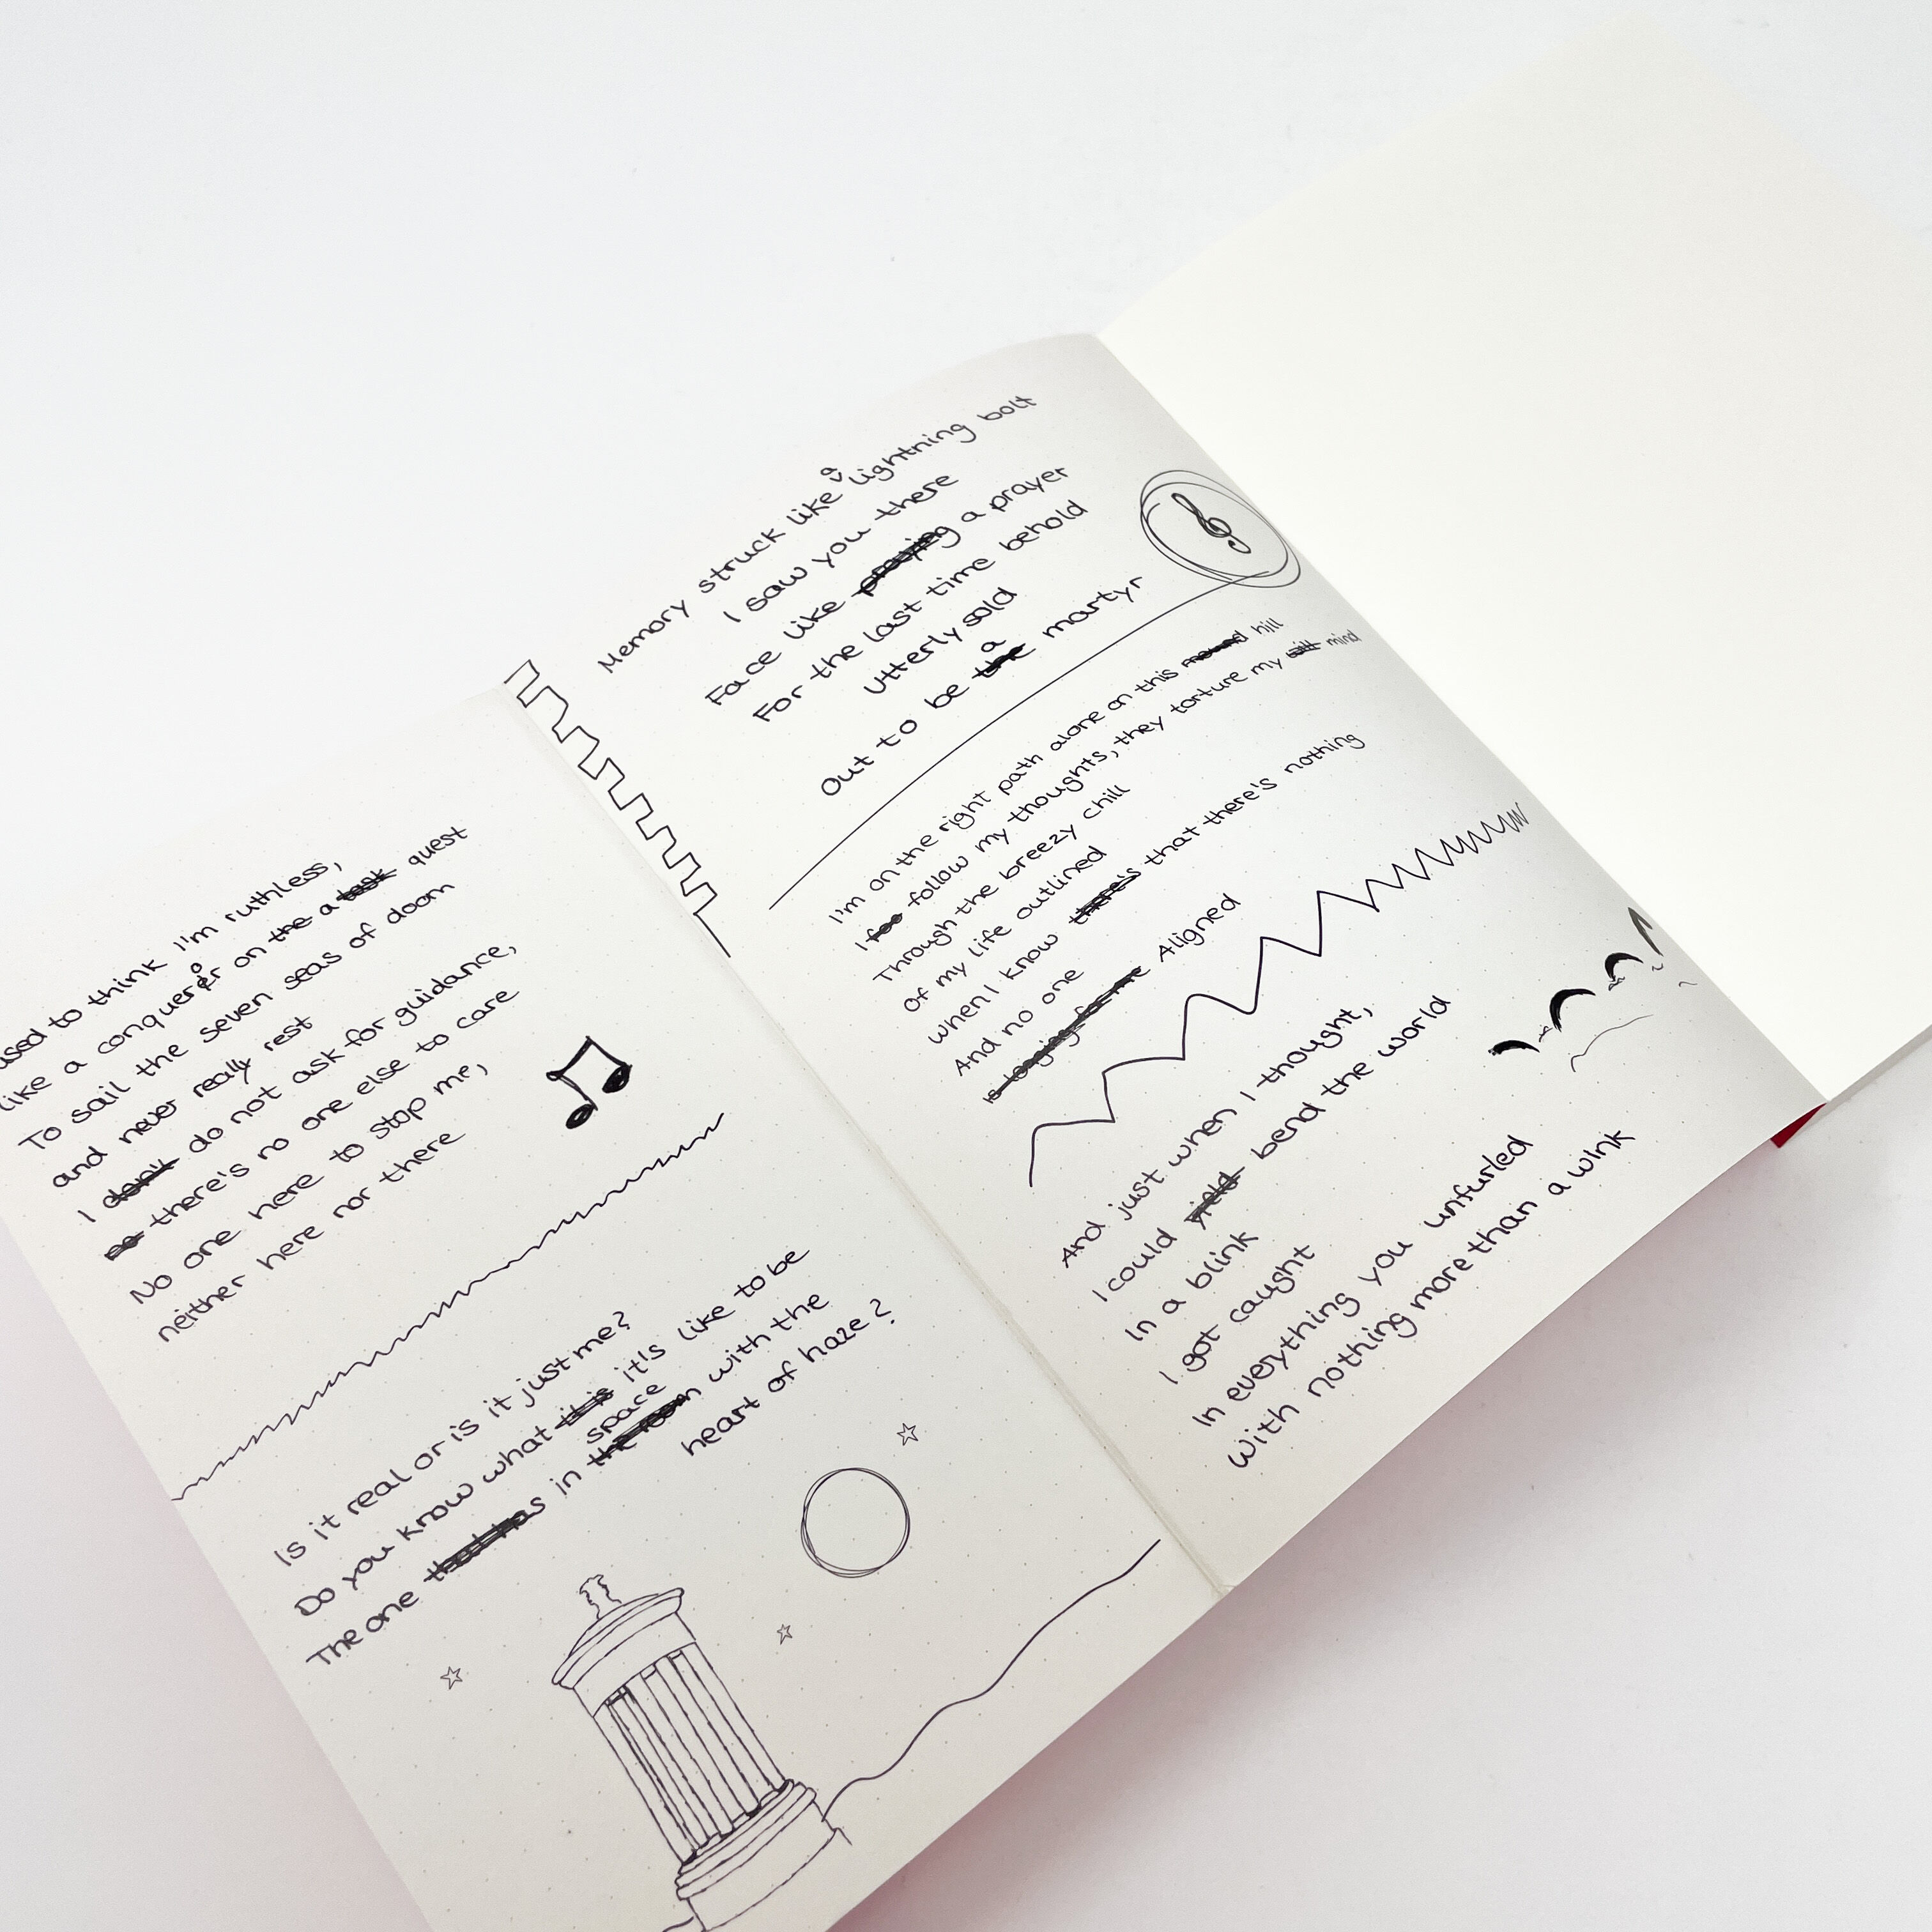 used to think I'm ruthless,
like a conqueror on the a task quest
To sail the seven seas of doom
and never really rest
I don't do not ask for guidance,
so there's no one else to care
No one here to stop me,
neither here nor there
Is it real or is it just me?
Do you know what it is it's like to be
The one that has in the room space with the
heart of haze?
Memory struck like a lightning bolt
I saw you there
Face like praying a prayer
For the last time behold
Utterly sold
Out to be the a martyr
I'm on the right path alone on this mound hill
I foo follow my thoughts, they torture my will mind
Through the breezy chill
Of my life outlined
when I know there's that there's nothing
And no one
is longing for me Aligned
And just when I thought,
I could yield bend the world
In a blink
I got caught
In everything you unfurled
With nothing more than a wink